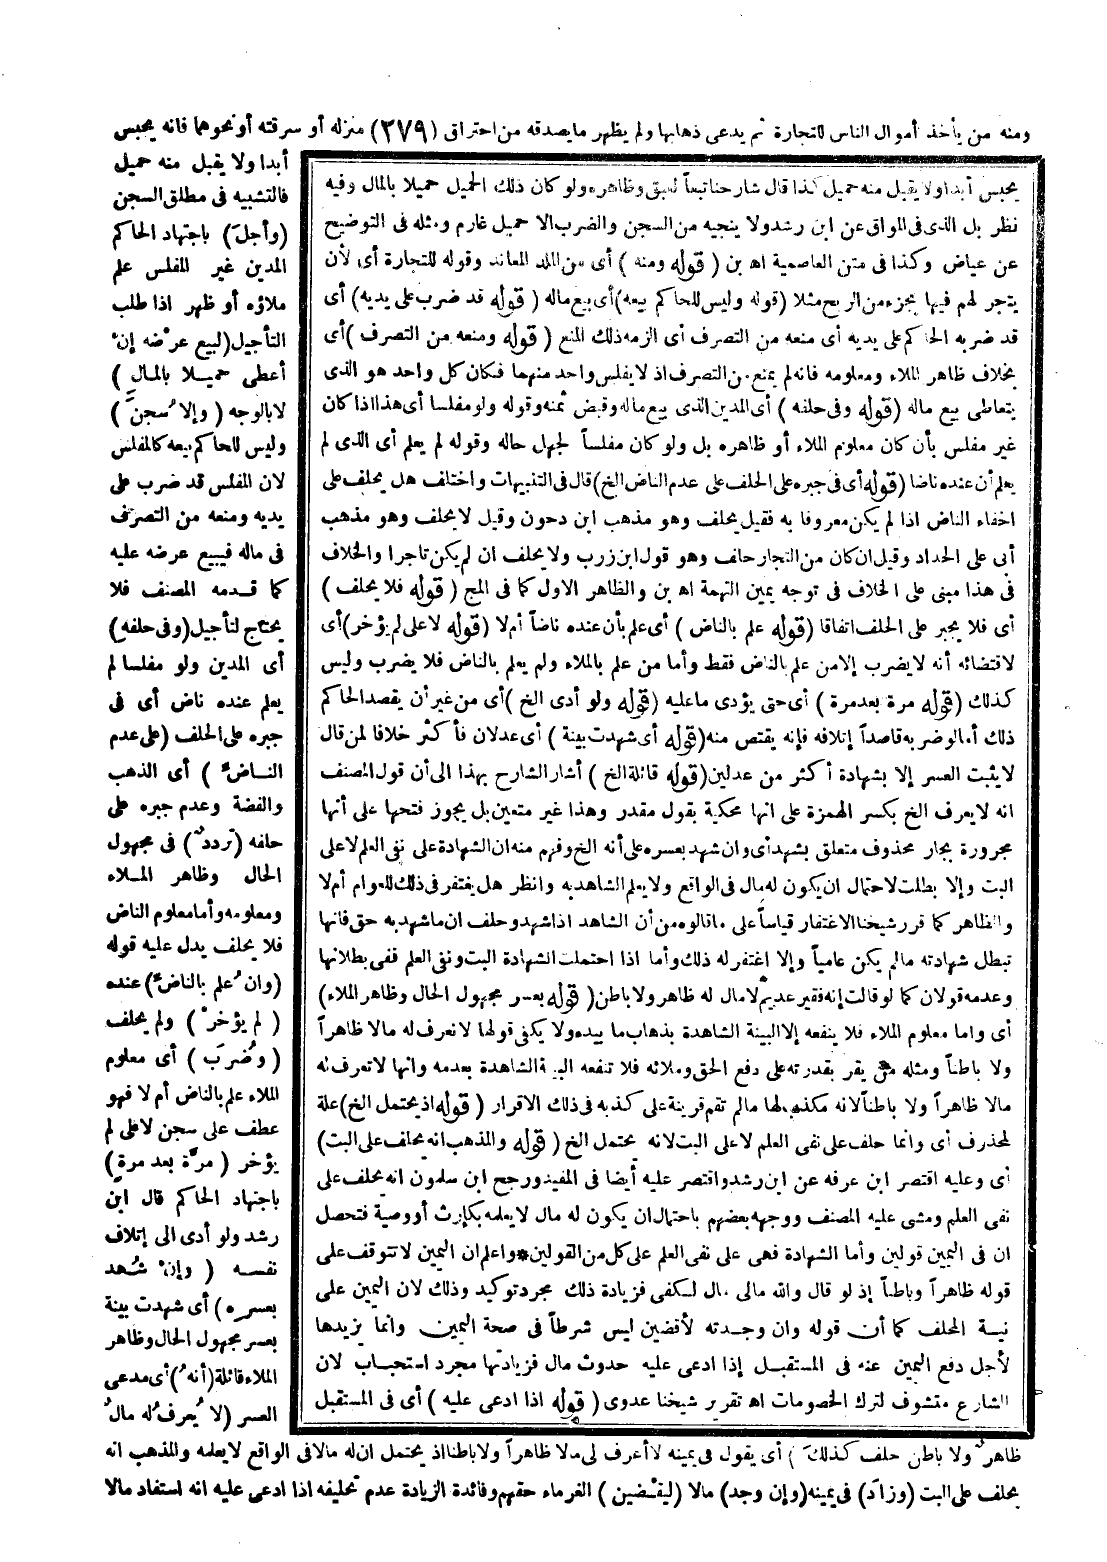 ومنه من يأخذ أموال الناس للتجارة ثم يدعى ذهابها ولم يظهر ما يصدقه من احتراق (٢٧٩) منزله أو سرقته أو نحوهما فانه يحبس
أبدا ولا يقبل منه حميل
فالتشبيه فى مطلق السجن
(وأجل) باجتهاد الحاكم
المدين غير المفلس علم
ملاؤه أو ظهر اذا طلب
التأجيل (لبيع عرضه إن
أعطى حميلا بالمال)
لا بالوجه (وإلا سجن)
وليس للحاكم بيعه كالمفلس
لان المفلس قد ضرب على
يديه ومنعه من التصرف
فى ماله فيبيع عرضه عليه
كما قدمه المصنف فلا
يحتاج لتأجيل (وفى حلفه)
أى المدين ولو مفلسا لم
يعلم عنده ناض أى فى
جبره على الحلف (على عدم
الناض) أى الذهب
والفضة وعدم جبره على
حلفه (تردد) فى مجهول
الحال وظاهر الملاء
ومعلومه وأما معلوم الناض
فلا يحلف يدل عليه قوله
(وان علم بالناض) عنده
(لم يؤخر) ولم يحلف
(وضرب) أى معلوم
الملاء علم بالناض أم لا فهو
عطف على سجن لا على لم
يؤخر (مرة بعد مرة)
باجتهاد الحاكم قال ابن
رشد ولو أدى الى إتلاف
نفسه (وإن شهد
بعسره) أى شهدت بينة
بعسر مجهول الحال وظاهر
الملاء قائلة (أنه) أى مدعى
العسر (لا يعرف له مال
ظاهر ولا باطن حلف كذلك) أى يقول فى يمينه لا أعرف لى مالا ظاهراً ولا باطنا اذ يحتمل ان له مالا فى الواقع لا يعلمه والمذهب انه
يحلف على البت (وزاد) فى يمينه (وإن وجد) مالا (ليقضين) الغرماء حقهم وفائدة الزيادة عدم تحليفه اذا ادعى عليه انه استفاد مالا
يحبس أبدا ولا يقبل منه حميل كذا قال شارحنا تبعاً لعبق وظاهره ولو كان ذلك الحميل حميلا بالمال وفيه
نظر بل الذى فى المواق عن ابن رشد ولا ينجيه من السجن والضرب الا حميل غارم ومثله فى التوضيح
عن عياض وكذا فى متن العاصمية اه بن (قوله ومنه) أى من الملد المعاند وقوله للتجارة أى لأن
يتجر لهم فيها بجزء من الربح مثلا (قوله وليس للحاكم بيعه) أى بيع ماله (قوله قد ضرب على يديه) أى
قد ضربه الحاكم على يديه أى منعه من التصرف أى الزمه ذلك المنع (قوله ومنعه من التصرف) أى
بخلاف ظاهر الملاء ومعلومه فانه لم يمنع من التصرف اذ لا يفلس واحد منهما فكان كل واحد هو الذى
يتعاطى بيع ماله (قوله وفى حلفه) أى المدين الذى بيع ماله وقبض ثمنه وقوله ولو مفلسا أى هذا اذا كان
غير مفلس بأن كان معلوم الملاء أو ظاهره بل ولو كان مفلساً لجهل حاله وقوله لم يعلم أى الذى لم
يعلم أن عنده ناضا (قوله أى فى جبره على الحلف على عدم الناض الخ) قال فى التنبيهات واختلف هل يحلف على
اخفاء الناض اذا لم يكن معروفا به فقيل يحلف وهو مذهب ابن دحون وقيل لا يحلف وهو مذهب
أبى على الحداد وقيل ان كان من التجار حلف وهو قول ابن زرب ولا يحلف ان لم يكن تاجرا والخلاف
فى هذا مبنى على الخلاف فى توجه يمين التهمة اه بن والظاهر الاول كما فى المج (قوله فلا يحلف)
أى فلا يجبر على الحلف اتفاقا (قوله علم بالناض) أى علم بأن عنده ناضاً أم لا (قوله لا على لم يؤخر) أى
لاقتضائه أنه لا يضرب إلا من علم بالناض فقط وأما من علم بالملاء ولم يعلم بالناض فلا يضرب وليس
كذلك (قوله مرة بعد مرة) أى حتى يؤدى ما عليه (قوله ولو أدى الخ) أى من غير أن يقصد الحاكم
ذلك أما لو ضربه قاصداً إتلافه فإنه يقتص منه (قوله أى شهدت بينة) أى عدلان فأكثر خلافا لمن قال
لا يثبت العسر إلا بشهادة أكثر من عدلين (قوله قائلة الخ) أشار الشارح بهذا الى أن قول المصنف
انه لا يعرف الخ بكسر الهمزة على انها محكية بقول مقدر وهذا غير متعين بل يجوز فتحها على أنها
مجرورة بجار محذوف متعلق بشهد أى وان شهد بعسره على أنه الخ وفهم منه ان الشهادة على نفى العلم لا على
البت وإلا بطلت لاحتمال ان يكون له مال فى الواقع ولا يعلم الشاهد به وانظر هل يغتفر فى ذلك للعوام أم لا
والظاهر كما قرر شيخنا الاغتفار قياساً على ما قالوه من أن الشاهد اذا شهد وحلف ان ما شهد به حق فانها
تبطل شهادته ما لم يكن عامياً وإلا اغتفر له ذلك وأما اذا احتملت الشهادة البت ونفى العلم ففى بطلانها
وعدمه قولان كما لو قالت إنه فقير عديم لا مال له ظاهر ولا باطن (قوله بعسر مجهول الحال وظاهر الملاء)
أى واما معلوم الملاء فلا ينفعه إلا البينة الشاهدة بذهاب ما بيده ولا يكفى قولها لا نعرف له مالا ظاهراً
ولا باطناً ومثله من يقر بقدرته على دفع الحق وملائه فلا تنفعه البينة الشاهدة بعدمه وانها لا تعرف له
مالا ظاهراً ولا باطناً لانه مكذب لها ما لم تقم قرينة على كذبه فى ذلك الاقرار (قوله اذ يحتمل الخ) علة
لمحذوف أى وانما حلف على نفى العلم لا على البت لانه يحتمل الخ (قوله والمذهب انه يحلف على البت)
أى وعليه اقتصر ابن عرفه عن ابن رشد واقتصر عليه أيضا فى المفيد ورجح ابن سلمون انه يحلف على
نفى العلم ومشى عليه المصنف ووجهه بعضهم باحتمال ان يكون له مال لا يعلمه بكإرث أو وصية فتحصل
ان فى اليمين قولين وأما الشهادة فهى على نفى العلم على كل من القولين * واعلم ان اليمين لا تتوقف على
قوله ظاهراً وباطناً إذ لو قال والله مالى مال لكفى فزيادة ذلك مجرد توكيد وذلك لان اليمين على
نية المحلف كما أن قوله وان وجدته لأقضين ليس شرطاً فى صحة اليمين وانما يزيدها
لأجل دفع اليمين عنه فى المستقبل إذا ادعى عليه حدوث مال فزيادتها مجرد استحباب لان
الشارع متشوف لترك الخصومات اه تقرير شيخنا عدوى (قوله اذا ادعى عليه) أى فى المستقبل